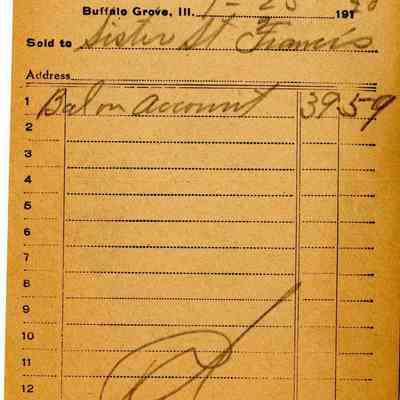 Buffalo Grove, Ill. 1-28 191
Sold to Sister St Francis
Address
1 Bal on account 39 59
2
3
4
5
6
7
8
9
10
11
12